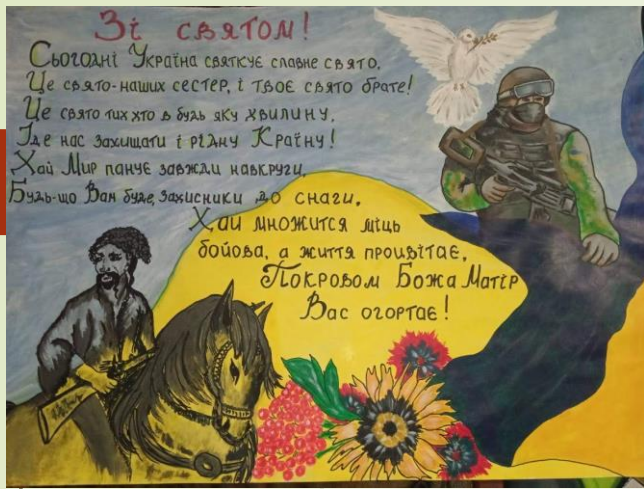 Зі святом!
Сьогодні Україна святкує славне свято,
Це свято-наших сестер, і твоє свято брате!
Це свято тих хто в будь яку хвилину,
Іде нас захищати і рідну Країну!
Хай Мир панує завжди навкруги,
Будь-що Вам буде, захисники до снаги,
Хай множится міць
бойова, а життя процвітає,
Покровом Божа Матір
Вас огортає!